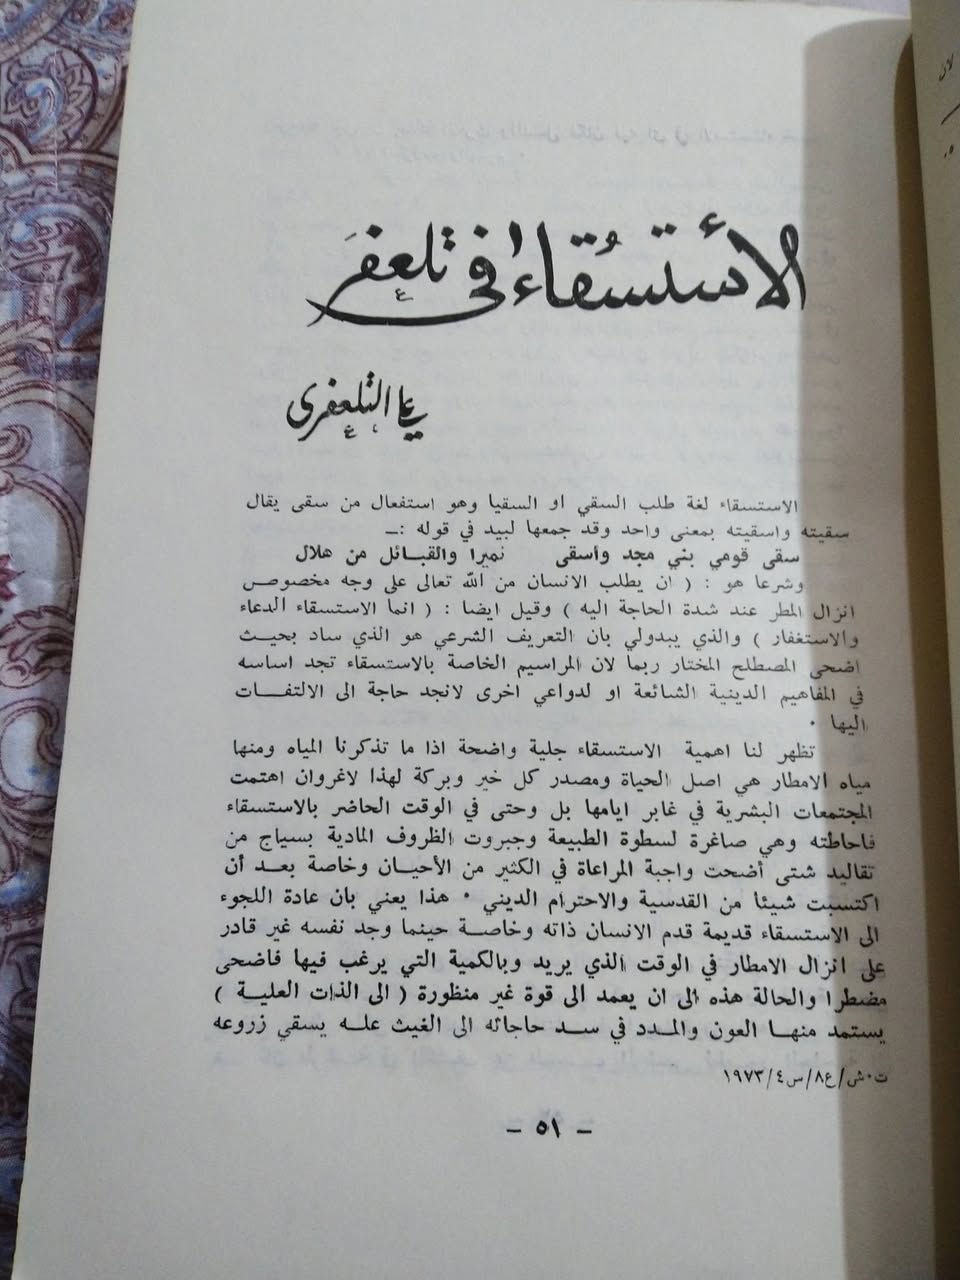 الأستسقاء في تلعفر
علي التلعفري
الاستسقاء لغة طلب السقي او السقيا وهو استفعال من سقى يقال
سقيته واسقيته بمعنى واحد وقد جمعها لبيد في قوله :ـ
سقى قومي بني مجد وأسقى نميرا والقبائل من هلال
وشرعا هو : ( ان يطلب الانسان من الله تعالى على وجه مخصوص
انزال المطر عند شدة الحاجة اليه ) وقيل ايضا : ( انما الاستسقاء الدعاء
والاستغفار ) والذي يبدولي بان التعريف الشرعي هو الذي ساد بحيث
اضحى المصطلح المختار ربما لان المراسيم الخاصة بالاستسقاء تجد اساسه
في المفاهيم الدينية الشائعة او لدواعي اخرى لانجد حاجة الى الالتفات
اليها ٠
تظهر لنا اهمية الاستسقاء جلية واضحة اذا ما تذكرنا المياه ومنها
مياه الامطار هي اصل الحياة ومصدر كل خير وبركة لهذا لاغروان اهتمت
المجتمعات البشرية في غابر ايامها بل وحتى في الوقت الحاضر بالاستسقاء
فاحاطته وهي صاغرة لسطوة الطبيعة وجبروت الظروف المادية بسياج من
تقاليد شتى أضحت واجبة المراعاة في الكثير من الأحيان وخاصة بعد أن
اكتسبت شيئا من القدسية والاحترام الديني ٠ هذا يعني بان عادة اللجوء
الى الاستسقاء قديمة قدم الانسان ذاته وخاصة حينما وجد نفسه غير قادر
على انزال الامطار في الوقت الذي يريد وبالكمية التي يرغب فيها فاضحى
مضطرا والحالة هذه الى ان يعمد الى قوة غير منظورة ( الى الذات العلية )
يستمد منها العون والمدد في سد حاجاته الى الغيث عله يسقي زروعه
ت٠ش/ع٨/س٤/١٩٧٣
– ٥١ –